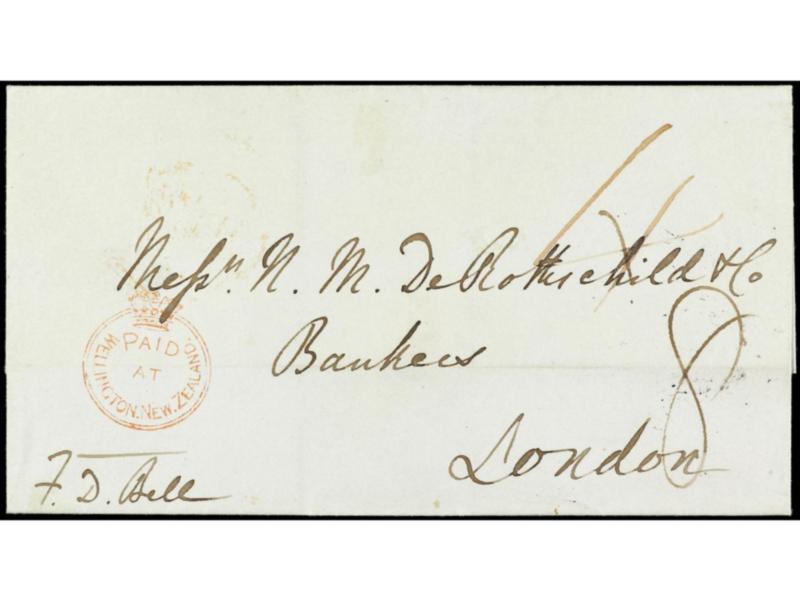 Messrs. N. M. De Rothschild & Co
Bankers
London
8
PAID
AT
WELLINGTON. NEW. ZEALAND.
F. D. Bell